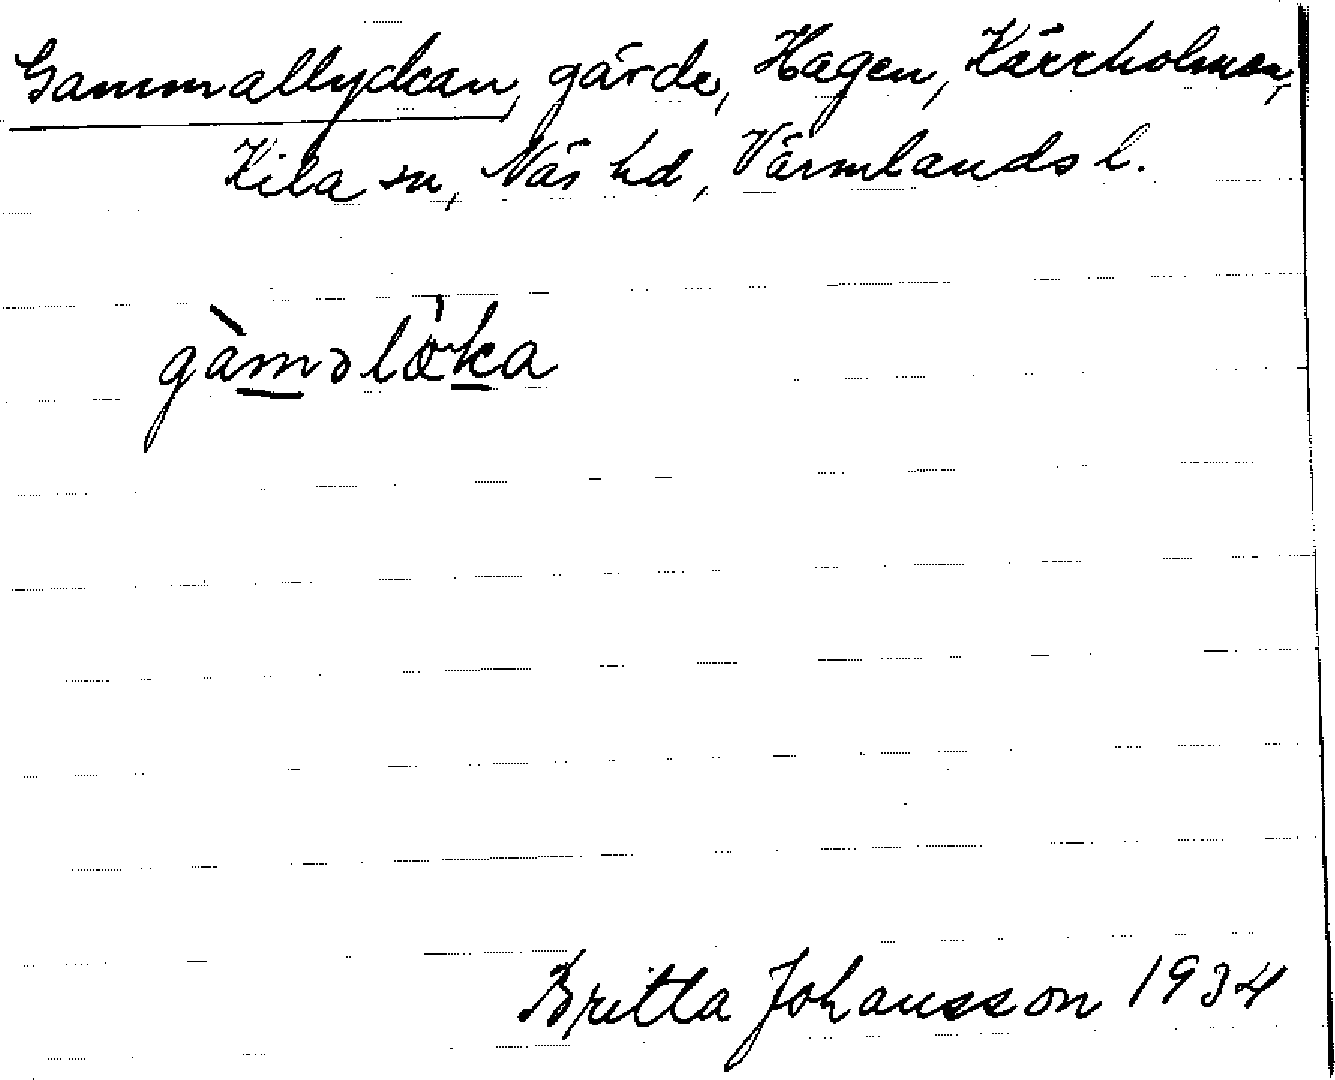 Gammallyckan, gärde, Hagen, Kärrholmen,
Kila sn, Näs hd, Värmlands l.
gàməlö̀ka
Britta Johansson 1934